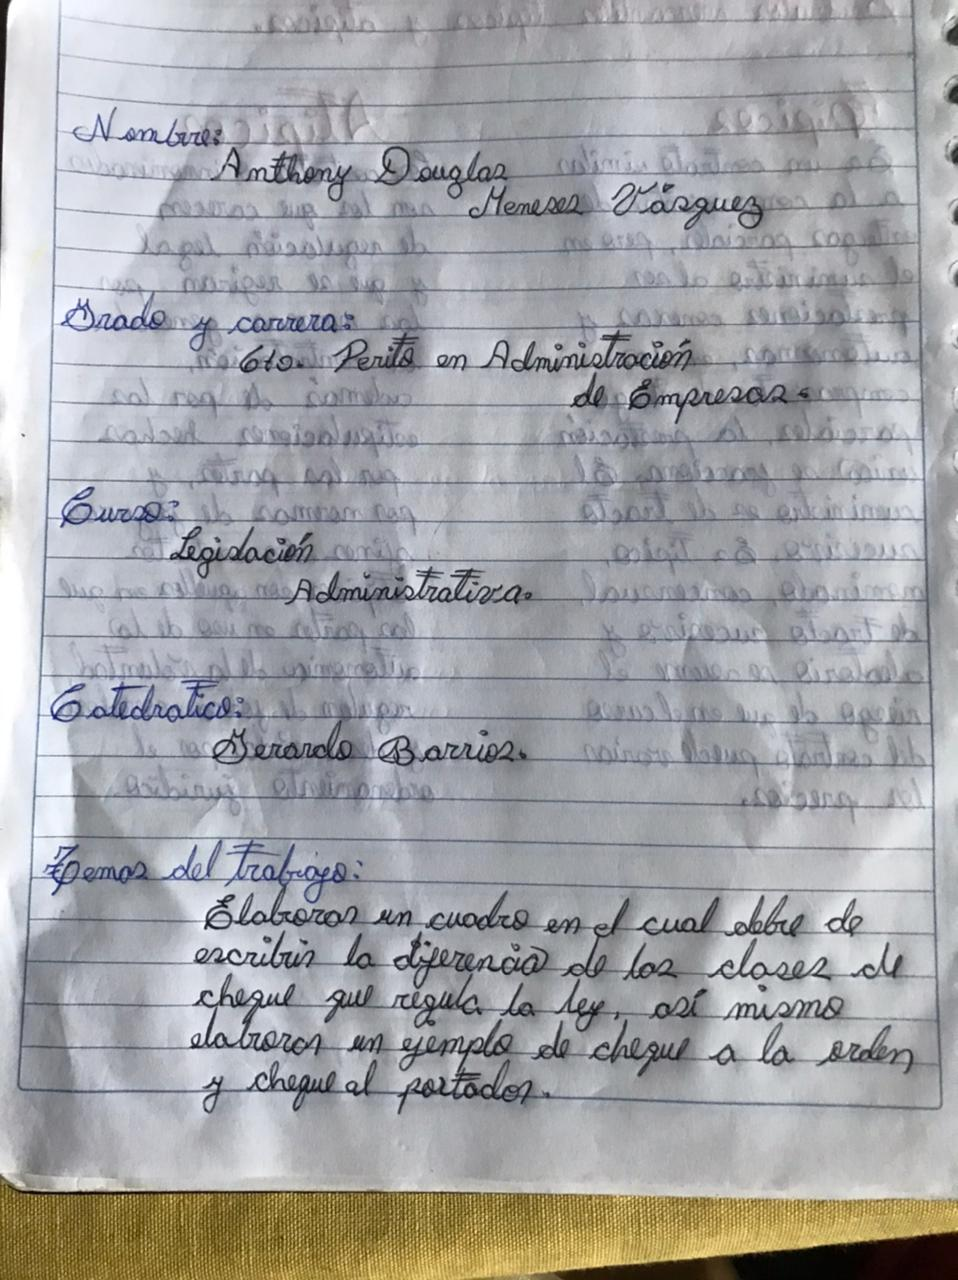 Nombre:
Anthony Douglas
Meneses Vásquez
Grado y carrera:
6to. Perito en Administración
de Empresas.
Curso:
Legislación
Administrativa.
Catedratico:
Gerardo Barrios.
Temas del trabajo:
Elaborar un cuadro en el cual debe de
escribir la diferencia de los clases de
cheque que regula la ley, así mismo
elaborar un ejemplo de cheque a la orden
y cheque al portador.